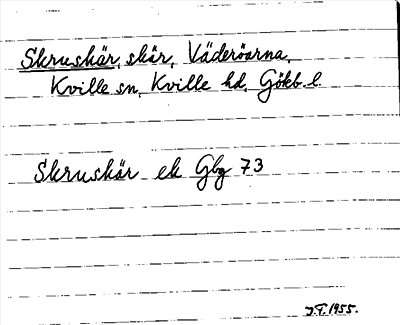 Skruskär, skär, Väderöarna,
Kville sn, Kville hd, Gökb. l.
Skruskär ek Gbg 73
J.T. 1955.